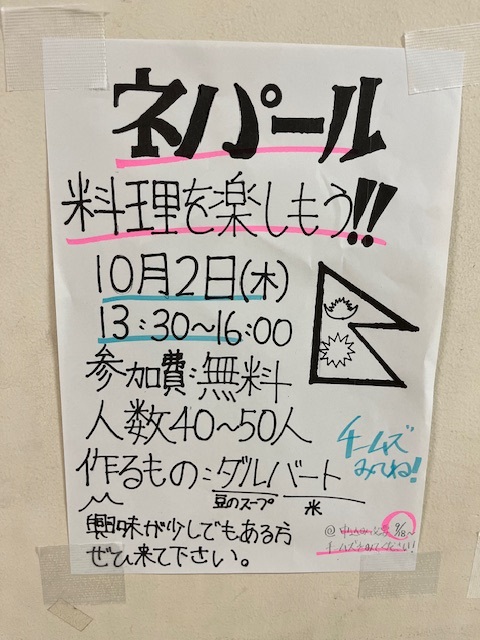 ネパール
料理を楽しもう!!
10月2日(木)
13:30～16:00
参加費:無料
人数40～50人
作るもの:ダルバート
豆のスープ 米
興味が少しでもある方
ぜひ来て下さい。
チームズ
みてね!
9/18～